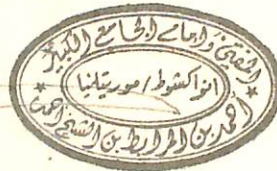 المفتي وإمام الجامع الكبير
انواكشوط / موريتانيا
أحمد بن المرابط بن الشيخ أحمد